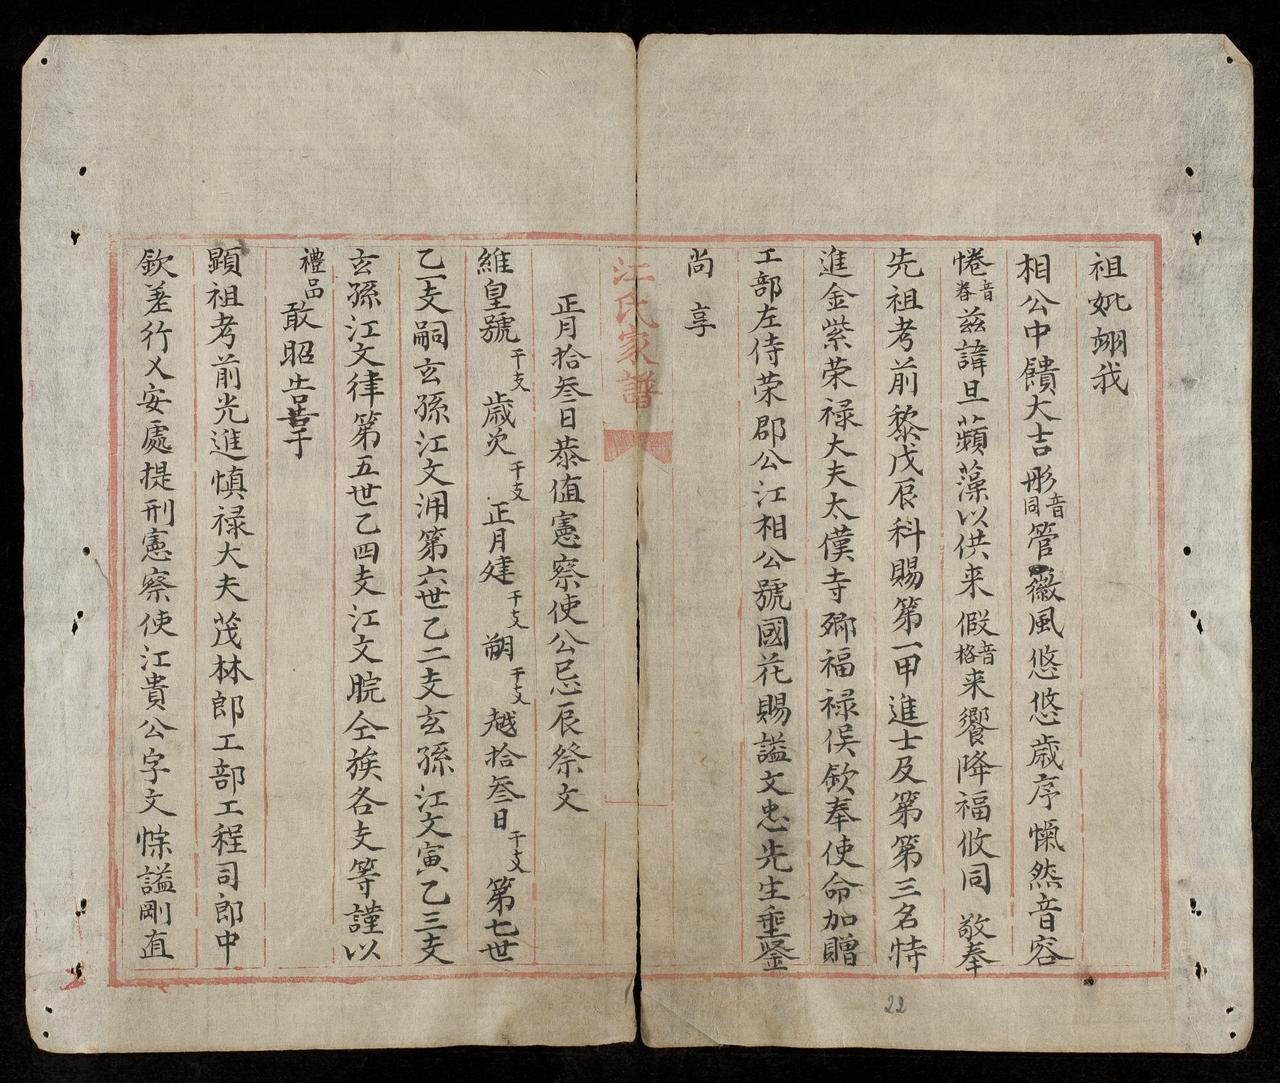 祖妣翊我
相公中饋大吉彤音同管徽風悠悠歳序愾然音容
惓音眷兹諱旦蘋藻以供来假音格来饗降福攸同 敬奉
先祖考前黎戊辰科賜第一甲進士及第第三名特
進金紫荣禄大夫太僕寺卿福禄侯欽奉使命加贈
工部左侍荣郡公江相公號國花賜謚文忠先生垂鉴
尚 享
江氏家譜
正月拾叁日恭值憲察使公忌辰祭文
維皇號干支 歳次干支 正月建干支 朔干支 越拾叁日干支 第七世
乙一支嗣玄孫江文浻第六世乙二支玄孫江文寅乙三支
玄孫江文律第五世乙四支江文脘仝族各支等謹以
禮品 敢昭告于
顕祖考前光進慎禄大夫茂林郎工部工程司郎中
欽差行乂安處提刑憲察使江貴公字文悰謚剛直
22